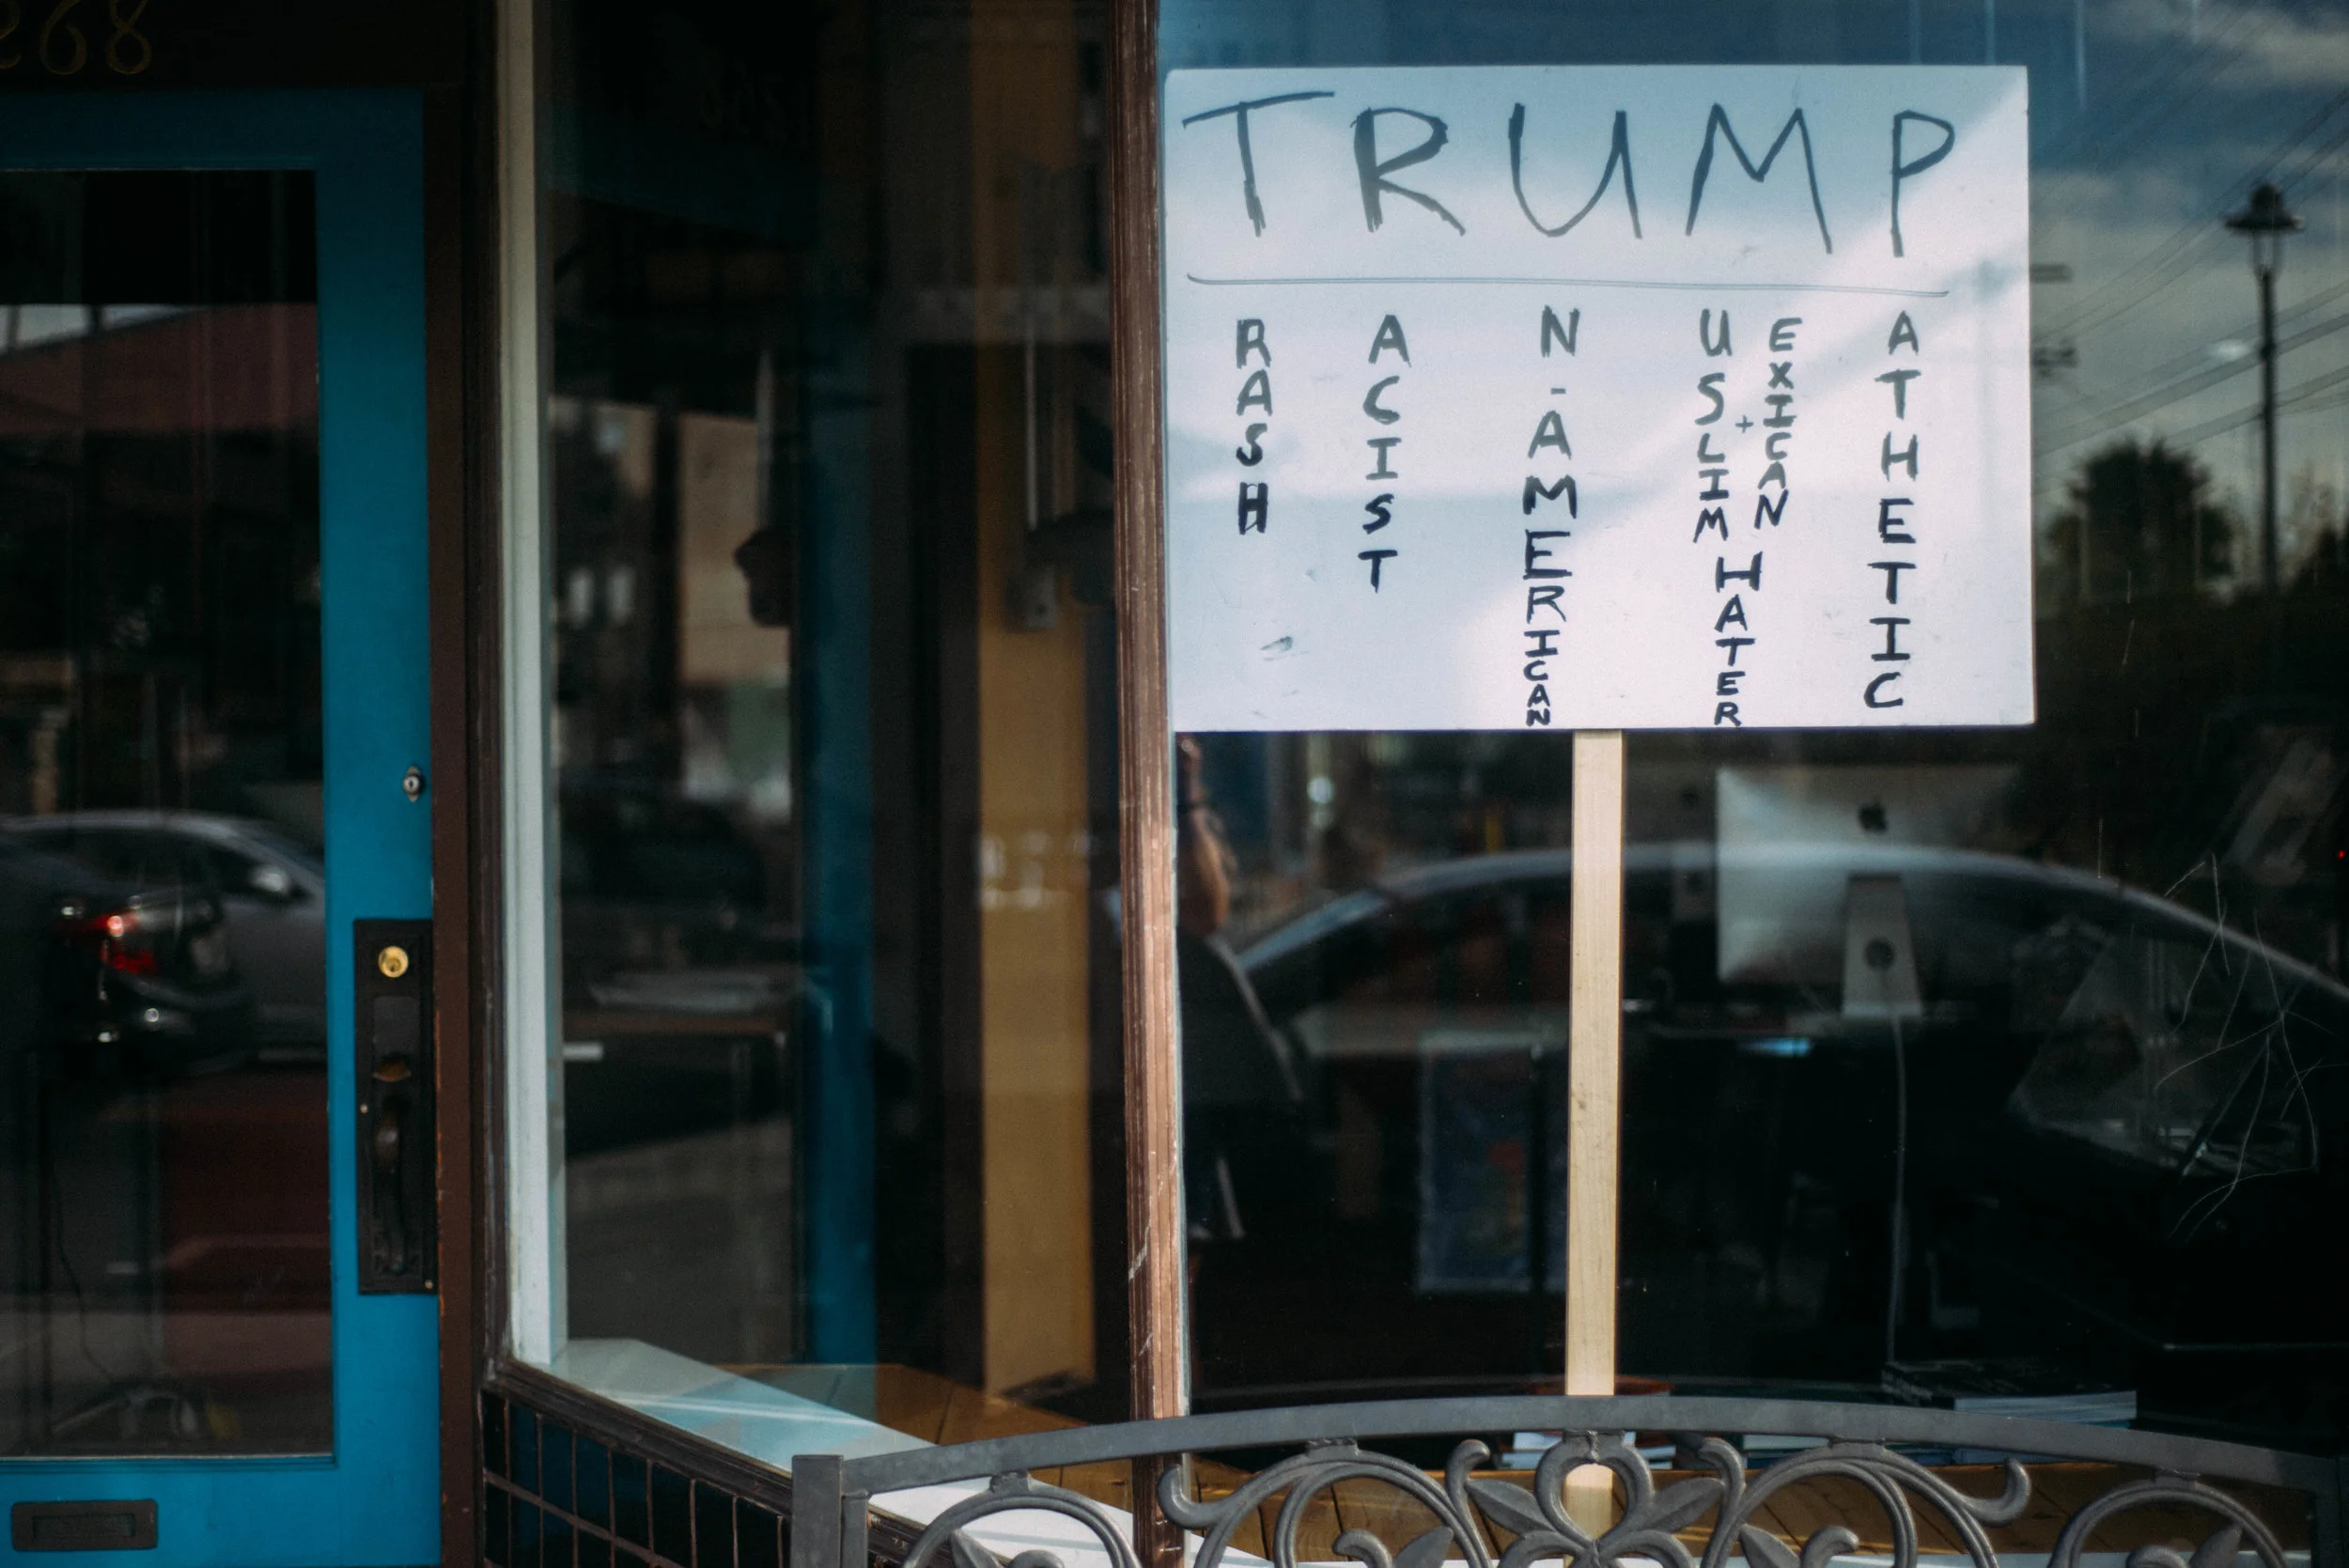 268
TRUMP
RASH
ACIST
N-AMERICAN
USLIM + EXICAN HATER
ATHETIC